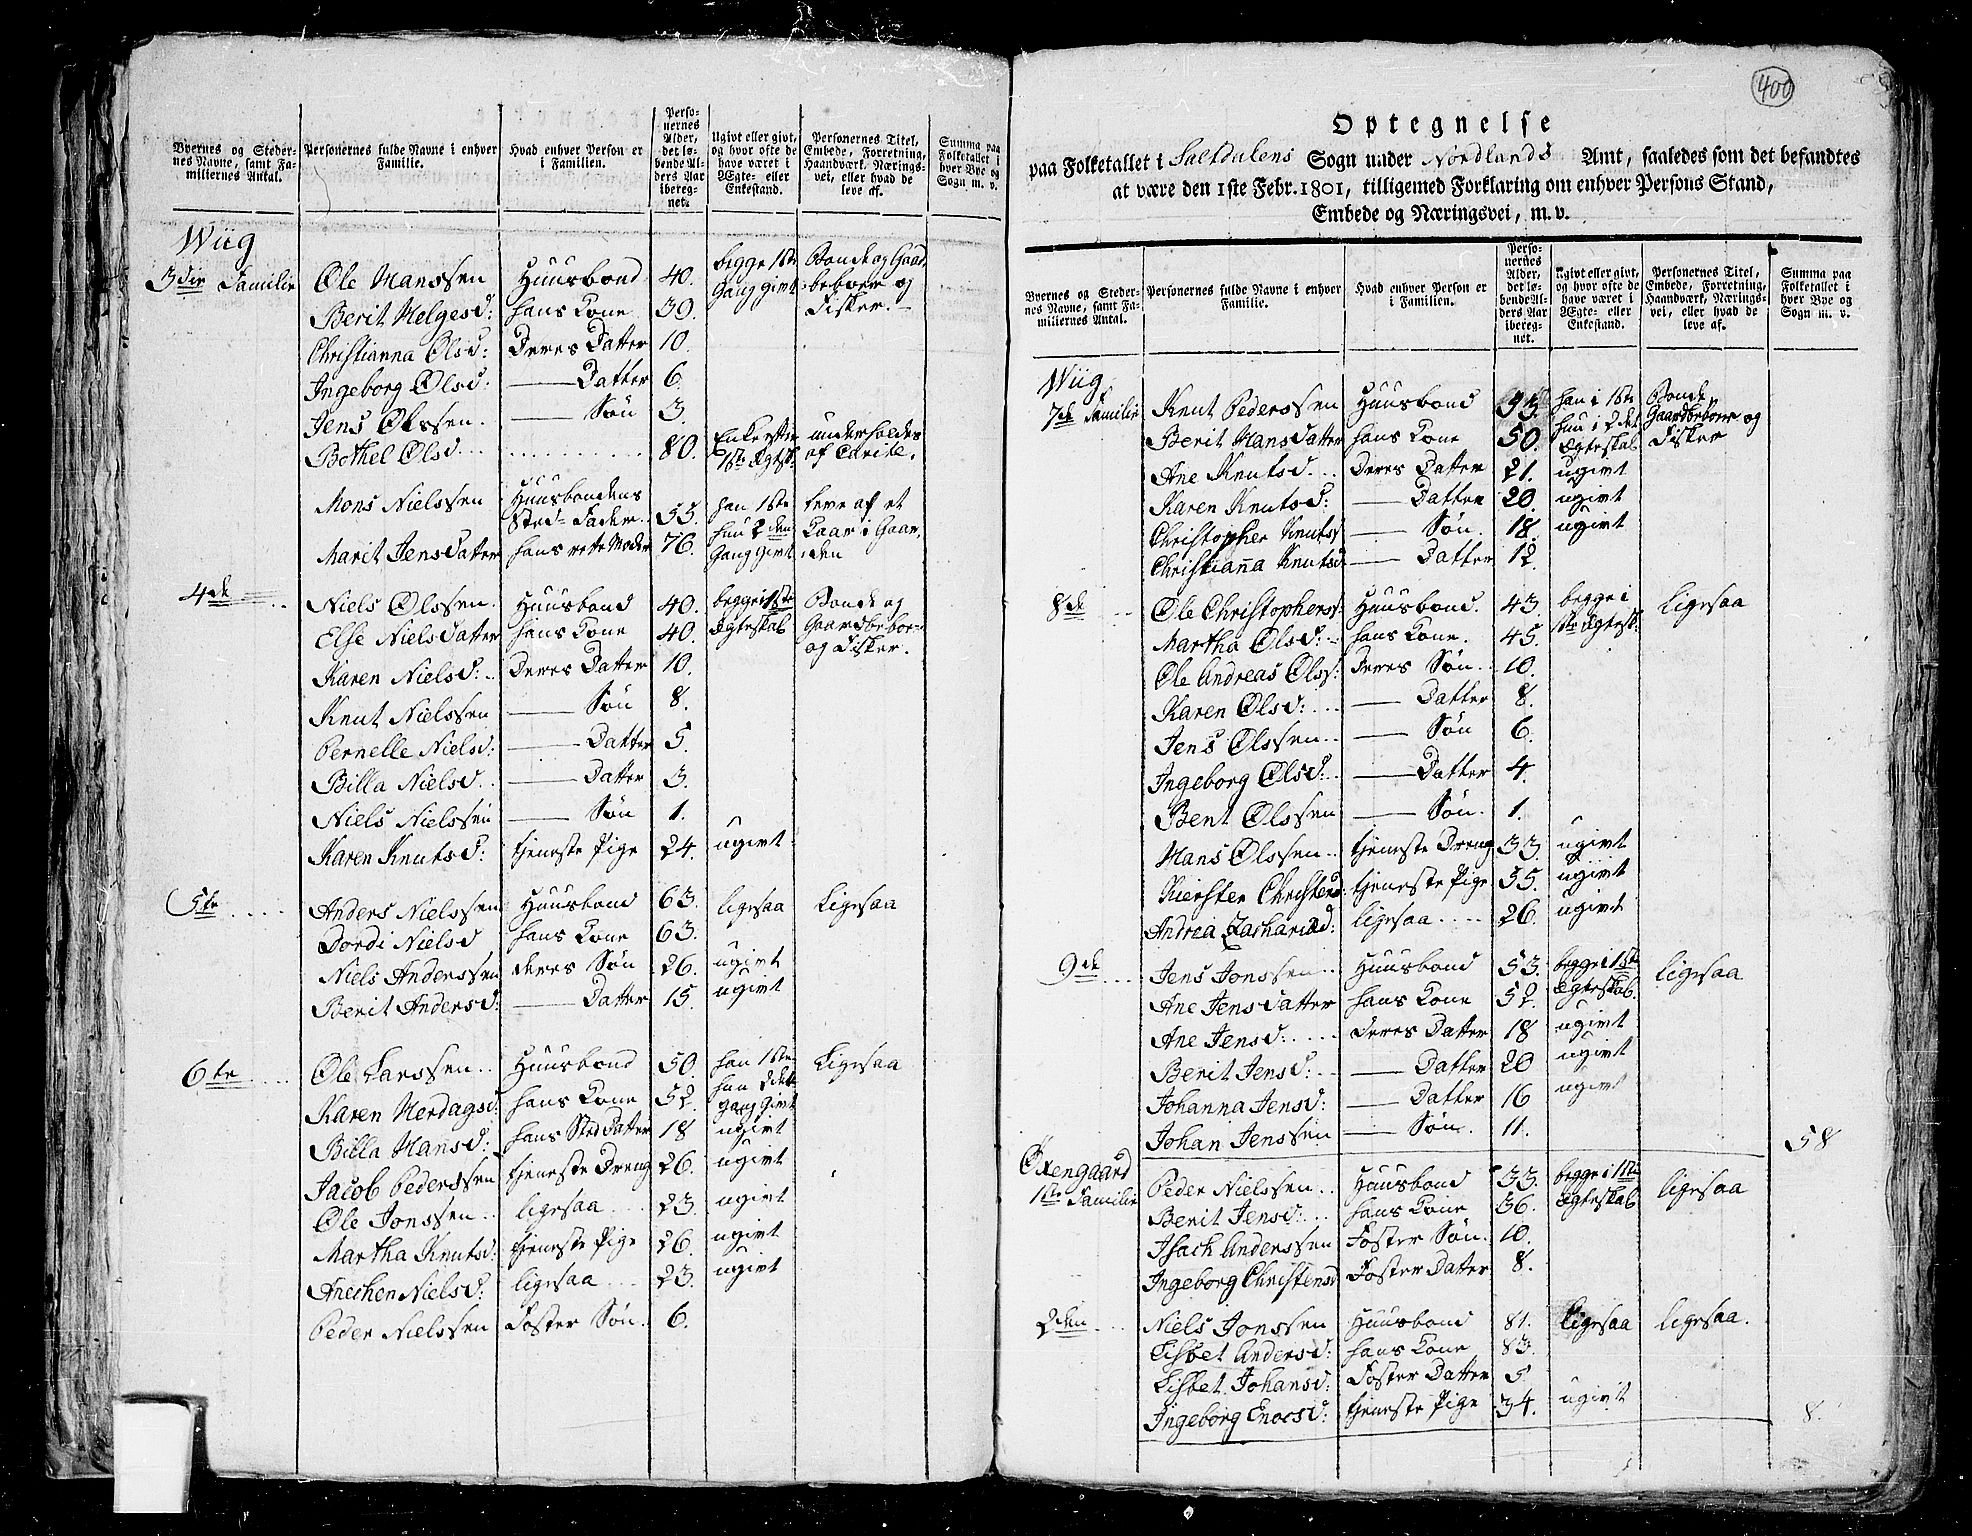 Byernes og Steder-
nes Navne, samt Fa-
miliernes Antal.
Personernes fulde Navne i enhver
Familie.
Hvad enhver Person er
i Familien.
Perso-
nernes
Alder,
det lø-
bende Al-
ders Aar
ibereg-
net.
Ugivt eller givt,
og hvor ofte de
have været i
Ægte- eller
Enkestand.
Personernes Titel,
Embede, Forretning,
Haandværk, Nærings-
vei, eller hvad de
leve af.
Summa paa
Folketallet i
hver Bye og
Sogn m. v.
Wiig
3die Familie Ole Hanssen Huusbond 40. begge 1ste Bonde og Gaard
Berit Helgesd: hans Kone 39. Gang givt beboer og Fisker.
Christianna Olsd: Deres Datter 10.
Ingeborg Olsd: — Datter 6.
Jens Olssen. — Søn 3.
Bothel Olsd... 80. Enke efter 1ste Ægtsk: underholdes af
Mons Nielssen Huusbondens Sted-Fader.. 55. han 1ste leve af et
Marit Jensdatter hans rette Moder 76. hun 2den Gang Givt Kaar i Gaarden
4de Niels Olssen. Huusbond 40. begge i 1ste Bonde og
Else Nielsdatter hans Kone 40. Ægteskab Gaardbeboer og Fisker.
Karen Nielsd:.. Deres Datter 10.
Knut Nielssen — Søn 8.
Pernelle Nielsd: — Datter 5.
Billa Nielsd.. — Datter 3.
Niels Nielssen — Søn 1.
Karen Knutsd: tjeneste Pige 24. ugivt
5te Anders Nielssen Huusbond 63. ligesaa Ligesaa
Dordi Nielsd hans Kone 63.
Niels Anderssen deres Søn 26. ugivt
Berit Andersd: — Datter 15. ugivt
6te Ole Larssen.. Huusbond 50. han 1ste Ligesaa
Karen Herdagsd: hans Kone 52. hun 2det gang Givt
Billa Hansd: hans Sted Datter 18 ugivt
Jacob Pederssen tjeneste Dreng 26. ugivt
Ole Jonssen.. ligesaa 23. ugivt
Martha Knutsd: tjeneste Pige 26. ugivt
Anechen Nielsd: ligesaa 23. ugivt
Peder Nielssen Foster Søn. 6.
400
Optegnelse
paa Folketallet i Saltdalens Sogn under Nordlands Amt, saaledes som det befandtes
at være den 1ste Febr. 1801, tilligemed Forklaring om enhver Persons Stand,
Embede og Næringsvei, m. v.
Byernes og Steder-
nes Navne, samt Fa-
miliernes Antal.
Personernes fulde Navne i enhver
Familie.
Hvad enhver Person er
i Familien.
Perso-
nernes
Alder,
det lø-
bende Al-
ders Aar
ibereg-
net.
Ugivt eller givt,
og hvor ofte de
have været i
Ægte- eller
Enkestand.
Personernes Titel,
Embede, Forretning,
Haandværk, Nærings-
vei, eller hvad de
leve af.
Summa paa
Folketallet i
hver Bye og
Sogn m. v.
Wiig
7de Familie Knut Pederssen Huusbond han i 1ste Bonde
Berit Hansdatter hans Kone 50. hun i 2det Ægteskab Gaardbeboer og Fisker
Ane Knutsd... Deres Datter 21. ugivt
Karen Knutsd: — Datter 20. ugivt
Christopher Knuts — Søn. 18. ugivt
Christianna Knutsd — Datter 12.
8de Ole Christophers: Huusbond. 43. begge i Ligesaa
Martha Olsd:.. hans Kone. 45. 1ste Ægtesk:
Ole Andreas Olss: Deres Søn. 10.
Karen Olsd:... — Datter 8.
Jens Olssen.. — Søn 6.
Ingeborg Olsd:.. — Datter 4.
Bent Olssen — Søn. 1.
Hans Olssen.. tjeneste Dreng 33. ugivt
Kiersten Christensd: tjeneste Pige 55. ugivt
Andrea Zachariæd: ligesaa 26. ugivt
9de Jens Jonssen.. Huusbond 53. begge i 1ste Ligesaa
Ane Jensdatter hans Kone 52. Ægteskab.
Ane Jensd:.... Deres Datter 18 ugivt
Berit Jensd:.. — Datter 20 ugivt
Johanna Jensd: — Datter 16 ugivt
Johan Jenssen — Søn. 11.
58
Øxengaard
1ste Familie Peder Nielssen.. Huusbond 33. begge i 1ste ligesaa
Berit Jensd:... hans Kone 36. Ægteskab
Isach Anderssen Foster Søn. 10.
Ingeborg Christensd Foster Datter 8.
2den Niels Jonssen Huusbond 81. ligesaa ligesaa.
Lisbet Andersd: hans Kone 83.
Lisbet Johansd: Foster Datter 5
Ingeborg Enocsd: tjeneste Pige 34. ugivt
8.